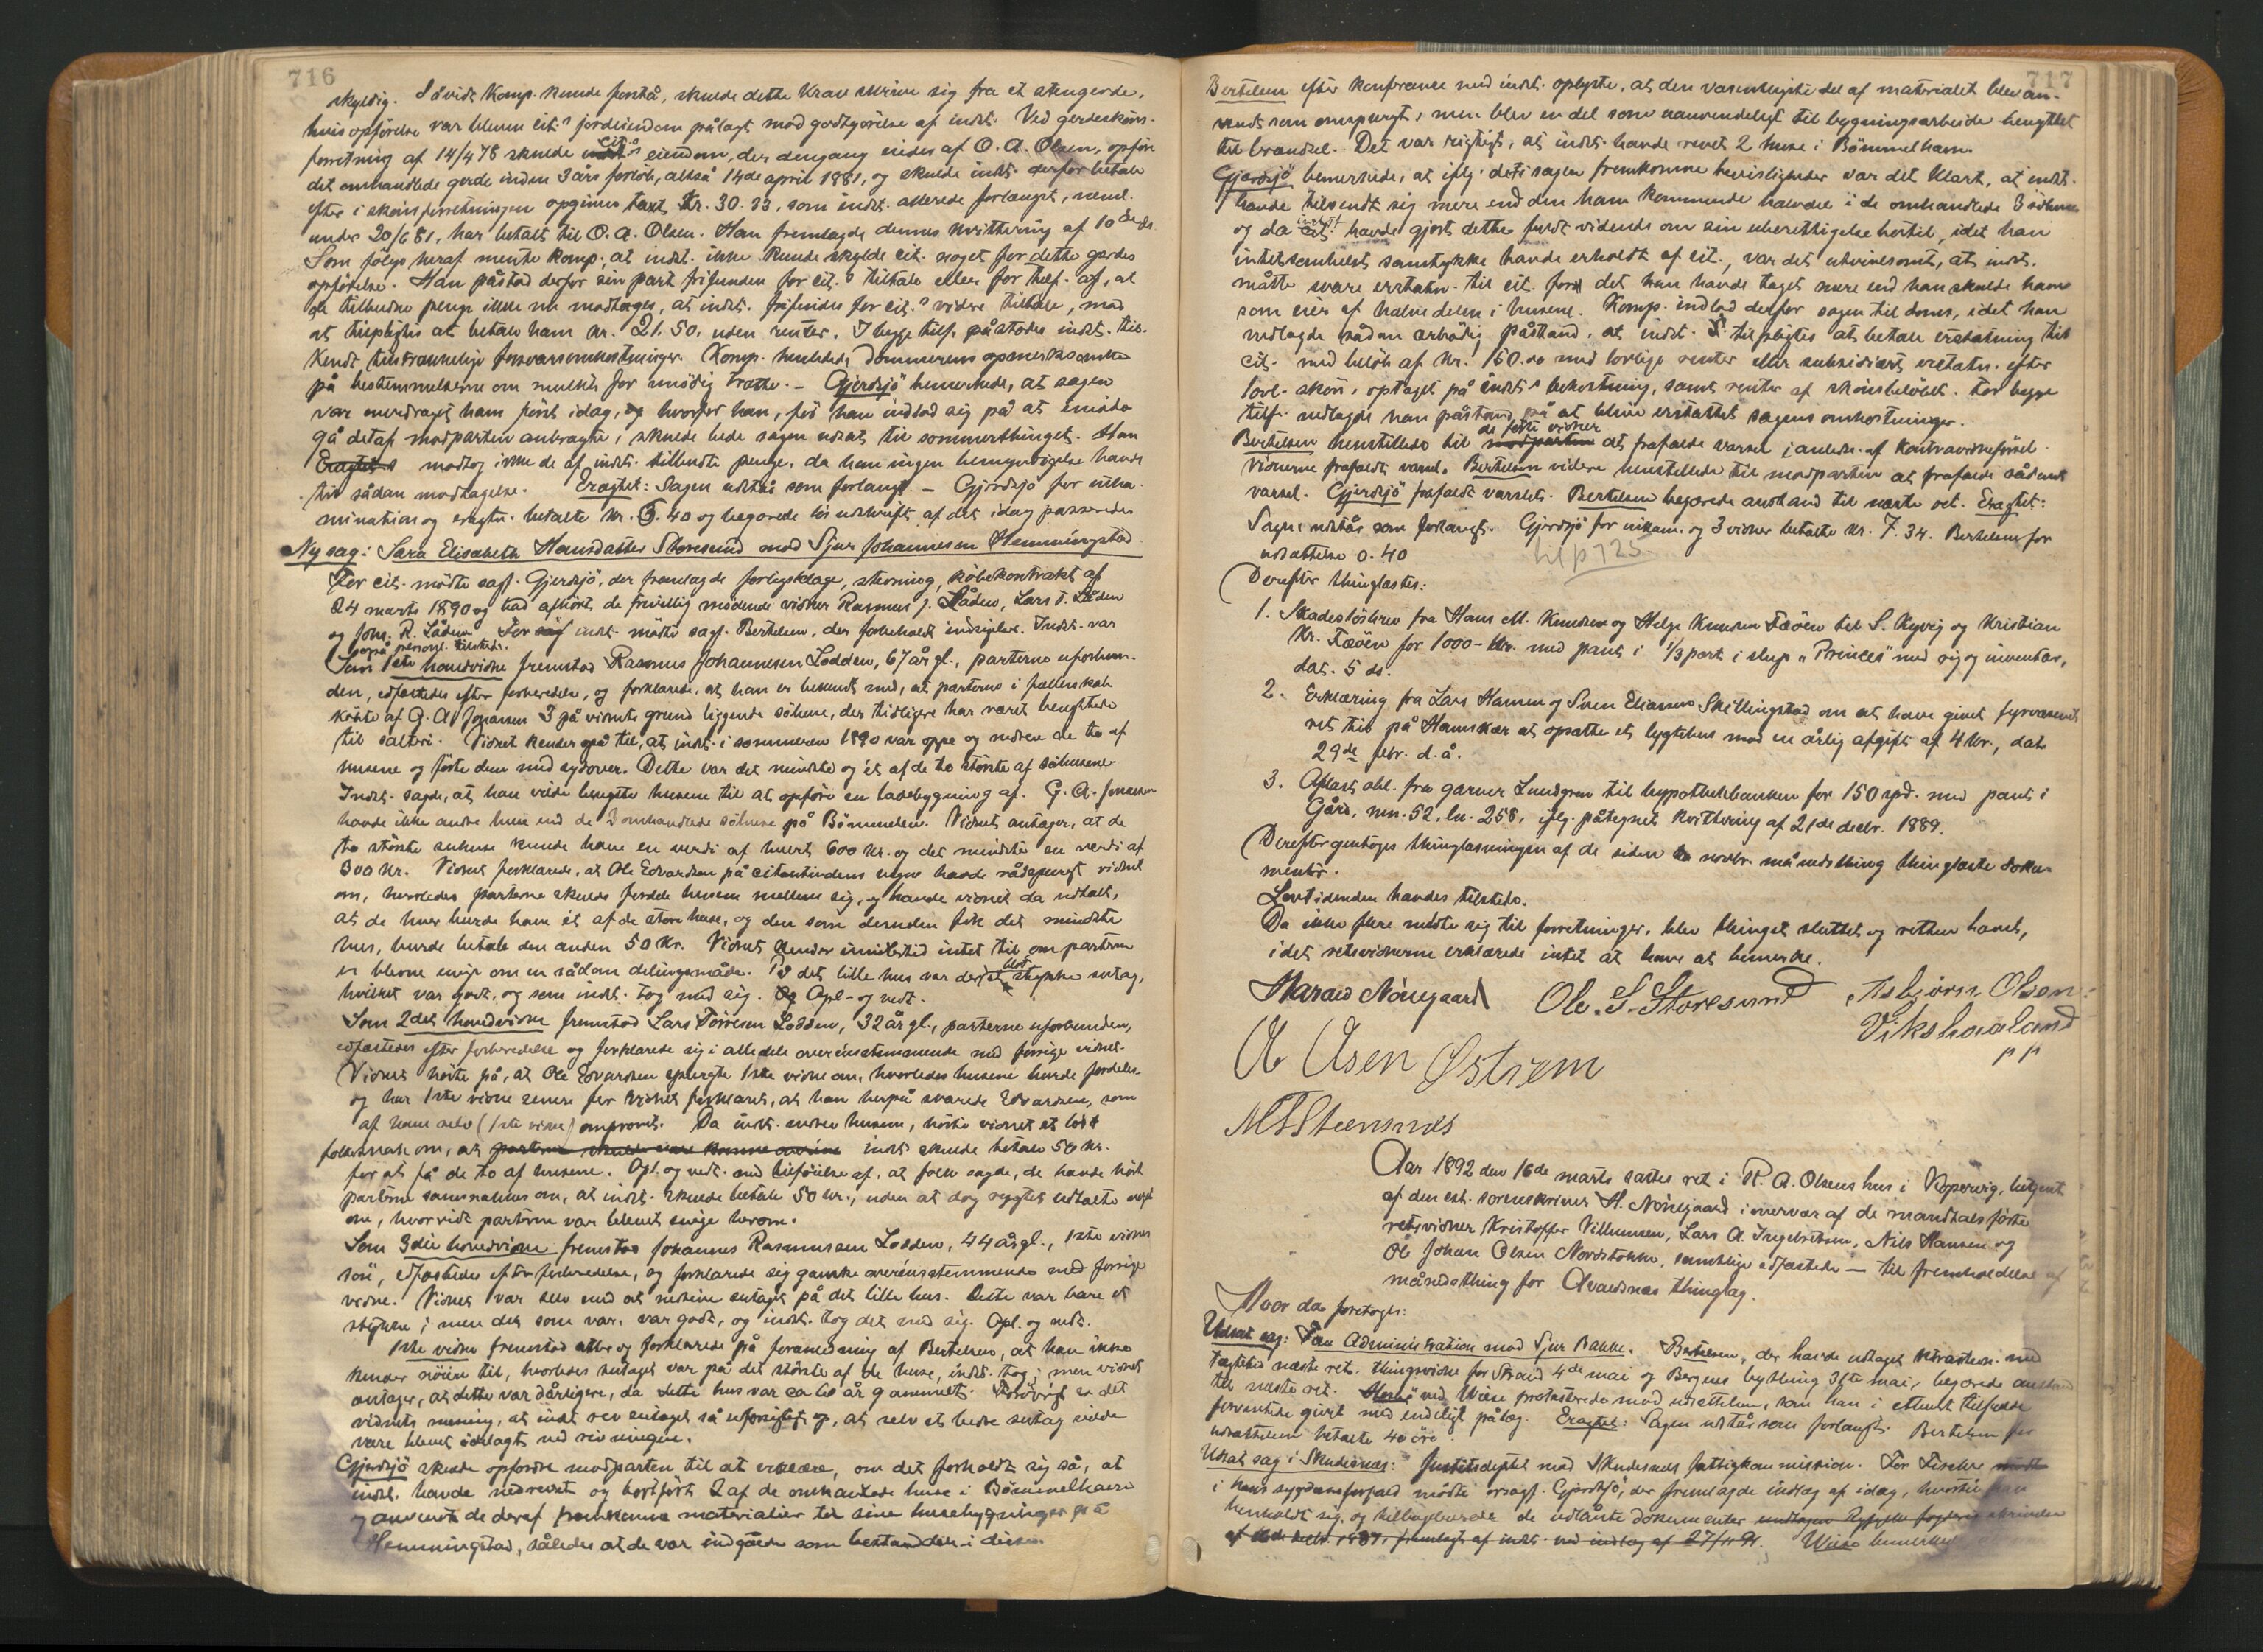 716
skyldig. Såvidt Komp. kunde forstå, skulde dette krav skrive sig fra et stengerde,
hvis opførelse var bleven cit.s jordeiendom pålagt mod godtgjørelse af indst. Ved gerdeskjøns-
forretning af 14/4 78 skulde cit.s eiendom, der dengang eiedes af O. A. Olsen, opføre
det omhandlede gerde inden 3 års forløb, altså 14de april 1881, og skulde indst. derfor betale
efter i skjønsforretningen opgiven taxt Kr. 30.33, som indst. allerede forlængst, neml.
under 20/6 81, har betalt til O. A. Olsen. Han fremlagde dennes kvittering af 10de ds.
Som følge heraf mente komp. at indst. ikke kunde skylde cit. noget for dette gerdes
opførelse. Han påstod derfor sin part frifunden for cit.s tiltale eller for tilf. af, at
de tilbudne penge ikke nu modtages, at indst. frifindes for cit.s videre tiltale, mod
at tilpligtes at betale ham kr. 21.50, uden renter. I begge tilf. påstodes indst. til-
kendt tilstrækkelige forsvarsomkostninger. Komp. henledede dommerens opmerksomhed
på bestemmelserne om mulkt for unødig trætte. – Gjerdsjö bemerkede, at sagen
var overdraget ham først idag, og hvorfor han, før han indlod sig på at imøde
gå det af modparten anbragte, skulde bede sagen udsat til sommerthinget. Han
Eragtet modtog ikke de af indst. tilbudte penge, da han ingen bemyndigelse havde
til sådan modtagelse. Eragtet: Sagen udstår som forlangt. – Gjerdsjö for exa-
mination og eragtn. betalte kr. 5.40 og begærede løs udskrift af det idag passerede
Ny sag: Sara Elisabeth Hansdatter Storesund mod Sjur Johannesen Hemmingstad
For cit. mødte sagf. Gjerdsjö, der fremlagde forligsklage, stevning, købekontrakt af
24 marts 1890 og bad afhørt de frivillig mødende vidner Rasmus J. Lådden, Lars T. Lådden
og Joh. R. Lådden. For indst. mødte sagf. Bertelsen, der forbeholdt indsigelse. Indst. var
også personl. tilstede.
Som 1ste hovedvidne fremstod Rasmus Johannesen Lodden, 67 år gl., parterne uforbun-
den, edfæstedes efter forberedelse, og forklarede, at han er bekendt med, at parterne i fælleskab
købte af G. A. Jonassen 3 på vidnets grund liggende søhuse, der tidligere har været benyttede
til salteri. Vidnet kender også til, at indst. i sommeren 1890 var oppe og nedrev de to af
husene og førte dem med sydover. Dette var det mindste og ét af de to største af søhusene.
Indst. sagde, at han vilde benytte husene til at opføre en ladebygning af. G. A. Jonassen
havde ikke andre huse end de 3 omhandlede søhuse på Bömmelen. Vidnet antager, at de
to største søhuse kunde have en verdi af hvert 600 kr. og det mindste en verdi af
300 kr. Vidnet forklarede, at Ole Edvardsen på citantindens vegne havde rådspurgt vidnet
om, hvorledes parterne skulde fordele husene mellem sig, og havde vidnet da udtalt,
at de hver burde have ét af de store huse, og den som desuden fik det mindste
hus, burde betale den anden 50 kr. Vidnet kender imidlertid intet til om parterne
er blevne enige om en sådan delingsmåde. På det lille hus var der blot et stykke sutag,
hvilket var godt, og som indst. tog med sig. Opl. og vedt.
Som 2det hovedvidne fremstod Lars Tørresen Lodden, 32 år gl., parterne uforbunden,
edfæstedes efter forberedelse og forklarede sig i alle dele overensstemmende med forrige vidne.
Vidnet hørte på, at Ole Edvardsen spurgte 1ste vidne om, hvorledes husene burde fordeles
og har 1ste vidne senere for vidnet forklaret, at han herpå svarede Edvardsen, som
af ham selv (1ste vidne) omprovet. Da indst. nedrev husene, hørte vidnet et løst
folkesnak om, at indst. skulde betale 50 kr.
for at få de to af husene. Opl. og vedt. med tilføielse af, at folk sagde, de havde hørt
parterne samsnakkes om, at indst. skulde betale 50 kr., uden at dog rygtet udtalte noget
om, hvorvidt parterne var blevet enige herom.
Som 3die hovedvidne fremstod Johannes Rasmussen Lodden, 44 år gl., 1ste vidnes
søn, edfæstedes efter forberedelse, og forklarede sig ganske overensstemmende med forrige
vidne. Vidnet var selv med at nedrive sutaget på det lille hus. Dette var bare et
stykke; men det som var, var godt, og indst. tog det med sig. Opl. og vedt.
1ste vidne fremstod atter og forklarede på foranledning af Bertelsen, at han ikke
kender nøiere til, hvorledes sutaget var på det største af de huse, indst. tog; men vidnet
antager, at dette var dårligere, da dette hus var ca 60 år gammelt. Forøvrigt er det
vidnets mening, at indst. rev sutaget så uforsigtigt op, at selv et bedre sutag vilde
være blevet ødelagt ved rivningen.
Gjerdsjö skulde opfordre modparten til at erklære, om det forholdt sig så, at
indst. havde nedrevet og bortført 2 af de omhandlede huse i Bömmelhavn
og anvendt de deraf fremkomne materialier til sine husebygninger på
Hemmingstad, således at de var indgåede som bestanddele i disse.
717
Bertelsen efter konferance med indst. oplyste, at den væsentligste del af materialet blev an-
vendt som omspurgt, men blev en del som uanvendeligt til bygningsarbeide benyttet
til brændsel. Det var rigtigt, at indst. havde revet 2 huse i Bömmelhavn.
Gjerdsjö bemerkede, at iflg. det i sagen fremkomne bevisligheder var det klart, at indst.
havde tilvendt sig mere end den ham kommende halvdel i de omhandlede 3 søhuse
og da indst. havde gjort dette fuldt vidende om sin uberettigelse hertil, idet han
intetsomhelst samtykke havde erholdt af cit., var det utvivlsomt, at indst.
måtte svare erstatn. til cit. for det han havde taget mere end han skulde have
som eier af halvdelen i husene. Komp. indlod derfor sagen til doms, idet han
nedlagde sådan ærbødig påstand, at indst. tilpligtes at betale erstatning til
cit. med beløb af kr. 150.00 med lovlige renter eller subsidiært erstatn. efter
lovl. skøn, optaget på indst.s bekostning, samt renter af skønsbeløbet. For begge
tilf. nedlagde han påstand på at blive erstattet sagens omkostninger.
Bertelsen henstillede til de førte vidner at frafalde varsel i anledn. af kontravidneførsel.
Vidnerne frafaldt varsel. Bertelsen videre henstillede til modparten at frafalde sådant
varsel. Gjerdsjö frafaldt varslet. Bertelsen begærede anstand til næste ret. Eragtet:
Sagen udstår som forlangt. Gjerdsjö for exam. og 3 vidner betalte kr. 7.34. Bertelsen for
udsættelse 0.40
Derefter thinglæstes:
1. Skadesløsbrev fra Hans M. Knudsen og Helge Knudsen Fæøen til S. Kyvig og Kristian
Kr. Fæøen for 1000- kr. med pant i 1/3 part i slup „Princes“ med rig og inventar,
dat. 5 ds.
2. Erklæring fra Lars Hansen og Sven Eliassen Skillingstad om at have givet fyrvæsenet
ret til på Hamskær at opsætte et lygtehus mod en årlig afgift af 4 kr., dat.
29de febr. d. å.
3. Aflæst obl. fra garver Lundgren til hypothekbanken for 150 spd. med pant i
Gård, mn. 52, ln. 258, iflg. påtegnet kvittering af 21de decbr. 1889.
Derefter gentoges thinglæsningen af de siden novbr. månedsthing thinglæste doku-
menter.
Lovtidenden havdes tilstede.
Da ikke flere meldte sig til forretninger, blev thinget sluttet og retten hævet,
idet retsvidnerne erklærede intet at have at bemerke.
Harald Nörregaard Ole. S. Storesund Asbjörn Olsen
Vikshaaland
A Asen Østrem
M T Steensnes
Aar 1892 den 16de marts sattes ret i R. A. Olsens hus i Kopervig, betjent
af den cst. sorenskriver H. Nörregaard i overvær af de mandtalsførte
retsvidner Kristoffer Villumsen, Lars A. Ingebretsen, Nils Hansen og
Ole Johan Olsen Nordstokke, samtlige edfæstede – til fremholdelse af
månedsthing for Avaldsnes thinglag.
Hvor da foretoges:
Udsat sag: Fan Administration mod Sjur Bakke. Bertelsen, der havde udtaget kontrastevn. med
tægtetid næste ret. thingsvidne for Strand 4de mai og Bergens bything 31te mai, begærede anstand
til næste ret. ved Wiese protesterede mod udsættelsen, som han i ethvert tilfælde
forventede givet med endeligt pålæg. Eragtet: Sagen udstår som forlangt. Bertelsen for
udsættelsen betalte 40 øre.
Udsat sag i Skudesnes: Justitsdeptet mod Skudesnes fattigkommission. For Fischer
i hans sygdomsforfald mødte orsagf. Gjerdsjö, der fremlagde indlæg af idag, hvortil han
henholdt sig, og tilbageleverede de udlånte dokumenter
af decbr. 1887, fremlagt af indst. ved indlæg af 27/11 91. Wiese bemerkede